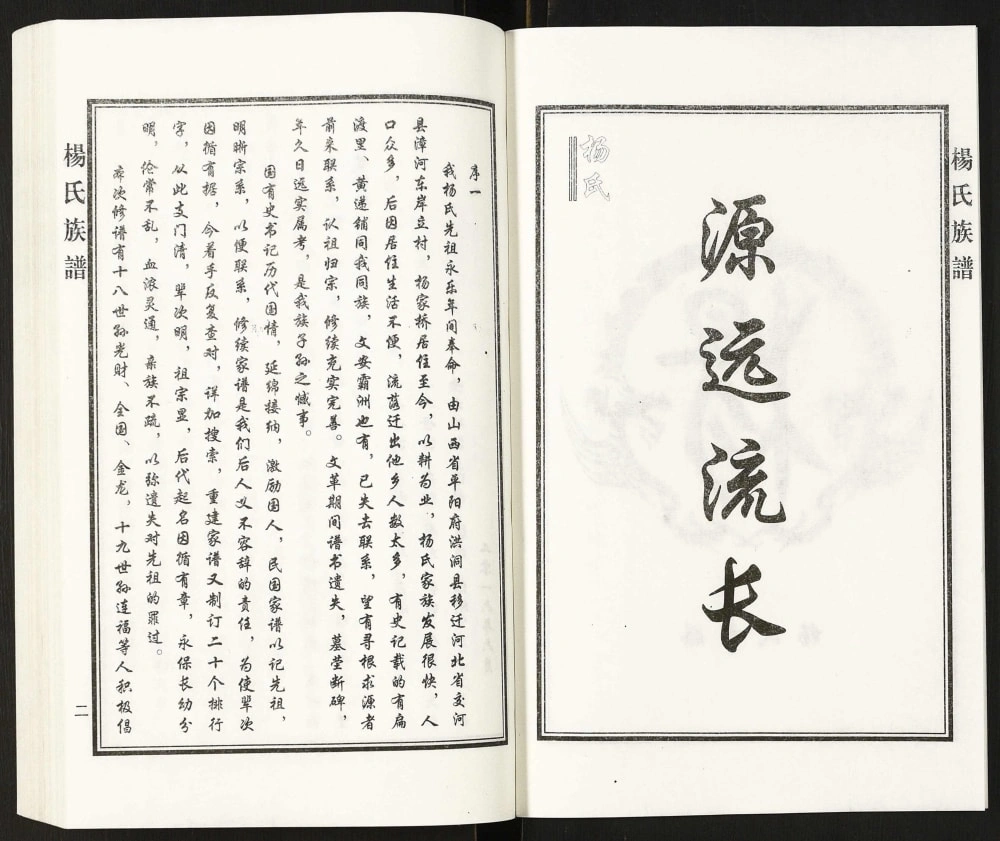 楊氏族譜
杨氏
源远流长
序一
我杨氏先祖永乐年间奉命，由山西省平阳府洪洞县移迁河北省交河
县漳河东岸立村，杨家桥居住至今，以耕为业，杨氏家族发展很快，人
口众多，后因居住生活不便，流落迁出他乡人数太多，有史记载的有扁
渡里、黄递铺同我同族，文安霸洲也有，已失去联系，望有寻根求源者
前来联系，认祖归宗，修续充实完善。文革期间谱书遗失，墓莹断碑，
年久日远实属考，是我族子孙之憾事。
国有史书记历代国情，延绵接纳，激励国人，民国家谱以记先祖，
明晰宗系，以便联系，修续家谱是我们后人义不容辞的责任，为使辈次
因循有据，今着手反复查对，详加搜索，重建家谱又制订二十个排行
字，以此支门清，辈次明，祖宗显，后代起名因循有章，永保长幼分
明，伦常不乱，血派灵通，亲族不疏，以弥遗失对先祖的罪过。
本次修谱有十八世孙光财、全国、金龙，十九世孙连福等人积极倡
楊氏族譜
二